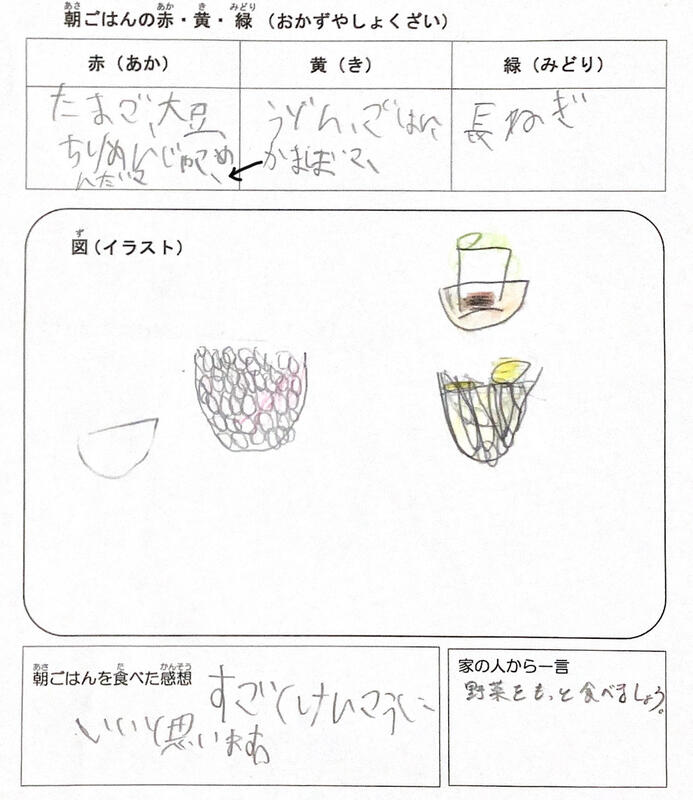 朝ごはんの赤・黄・緑（おかずやしょくざい）
赤（あか）
黄（き）
緑（みどり）
たまご、大豆、
ちりめんじゃこ、め
んたいこ、
うどん、ごはん、
かまぼこ、
長ねぎ
図（イラスト）
朝ごはんを食べた感想
すごくけんこうに
いいと思います
家の人から一言
野菜をもっと食べましょう。